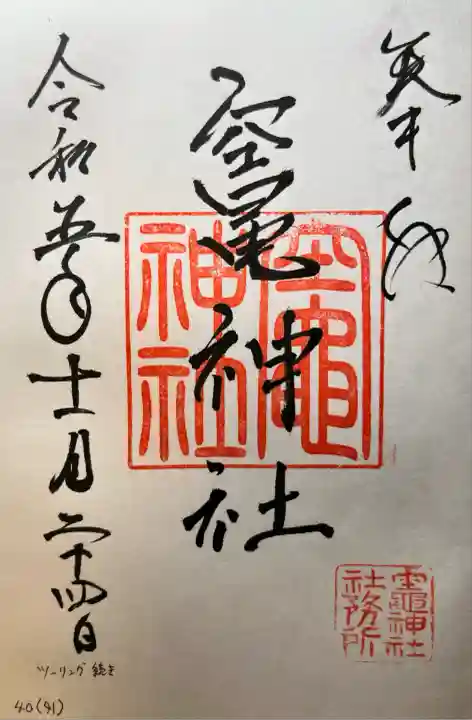 奉拝
竃神社
竈神社
令和五年十一月二十四日
竈神社
社務所
ツーリング 続き
40(91)